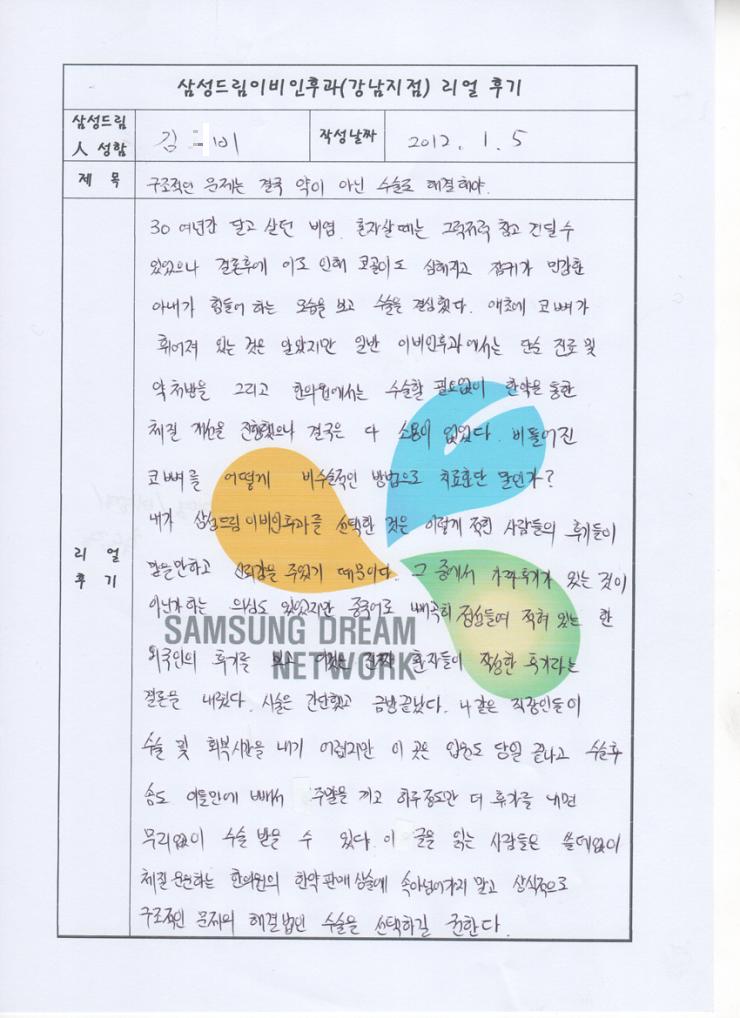 삼성드림이비인후과(강남지점) 리얼 후기
삼성드림
人 성함
김 비
작성날짜
2012. 1. 5
제 목
구조적인 문제는 결국 약이 아닌 수술로 해결해야.
리 얼
후 기
30여년간 달고 살던 비염. 혼자살때는 그럭저럭 참고 견딜 수
있었으나 결혼후에 이로 인해 코골이도 심해지고 잠귀가 민감한
아내가 힘들어 하는 모습을 보고 수술을 결심했다. 애초에 코뼈가
휘어져 있는 것은 알았지만 일반 이비인후과에서는 단순 진료 및
약처방을 그리고 한의원에서는 수술할 필요없이 한약을 통한
체질 개선을 진행했으나 결국은 다 소용이 없었다. 비틀어진
코뼈를 어떻게 비수술적인 방법으로 치료한단 말인가?
내가 삼성드림이비인후과를 선택한 것은 이렇게 적힌 사람들의 후기들이
신뢰감을 주었기 때문이다. 그 중에서 가짜후기가 있는 것이
아닌가하는 의심도 있었지만 중국어로 빼곡히 정성들여 적혀 있는 한
외국인의 후기를 보고 이것은 진짜 환자들이 작성한 후기라는
결론을 내렸다. 시술은 간단했고 금방끝났다. 나같은 직장인들이
수술 및 회복시간을 내기 어렵지만 이 곳은 입원도 당일 끝나고 수술후
솜도 이틀만에 빼서 주말을 끼고 하루정도만 더 휴가를 내면
무리없이 수술 받을 수 있다. 이 글을 읽는 사람들은 쓸데없이
체질 운운하는 한의원의 한약 판매 상술에 속아넘어가지 말고 상식적으로
구조적인 문제의 해결법인 수술을 선택하길 권한다.
SAMSUNG DREAM
NETWORK